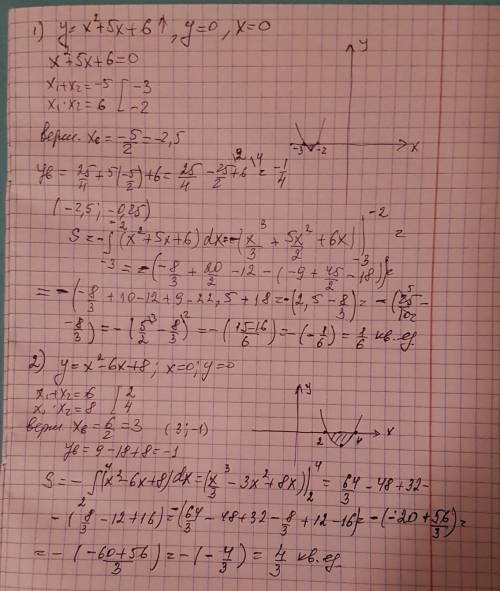 1) y=x²+5x+6↑, y=0, x=0
x²+5x+6=0
x₁+x₂=-5 [ -3
x₁·x₂=6 [ -2
верш. xв=-5/2=-2,5
yв=25/4+5(-5/2)+6=25/4-25/2+6=-1/4
(-2,5; -0,25)
S=-∫₋₃⁻²(x²+5x+6)dx=-(x³/3+5x²/2+6x)|₋₃⁻²=
=-(-8/3+20/2-12-(-9+45/2-18))=
=-(-8/3+10-12+9-22,5+18=-(2,5-8/3)=-(25/10-
-8/3)=-(5/2-8/3)=-(15-16/6)=-(-1/6)=1/6 кв.ед.
y
x
-3
-2
2) y=x²-6x+8; x=0; y=0
x₁+x₂=6 [ 2
x₁·x₂=8 [ 4
верш xв=6/2=3 (3;-1)
yв=9-18+8=-1
y
x
2
4
S=-∫₂⁴(x²-6x+8)dx=(x³/3-3x²+8x)|₂⁴=64/3-48+32-
-(8/3-12+16)=-(64/3-48+32-8/3+12-16)=-(-20+56/3)=
=-(-60+56/3)=-(-4/3)=4/3 кв.ед.